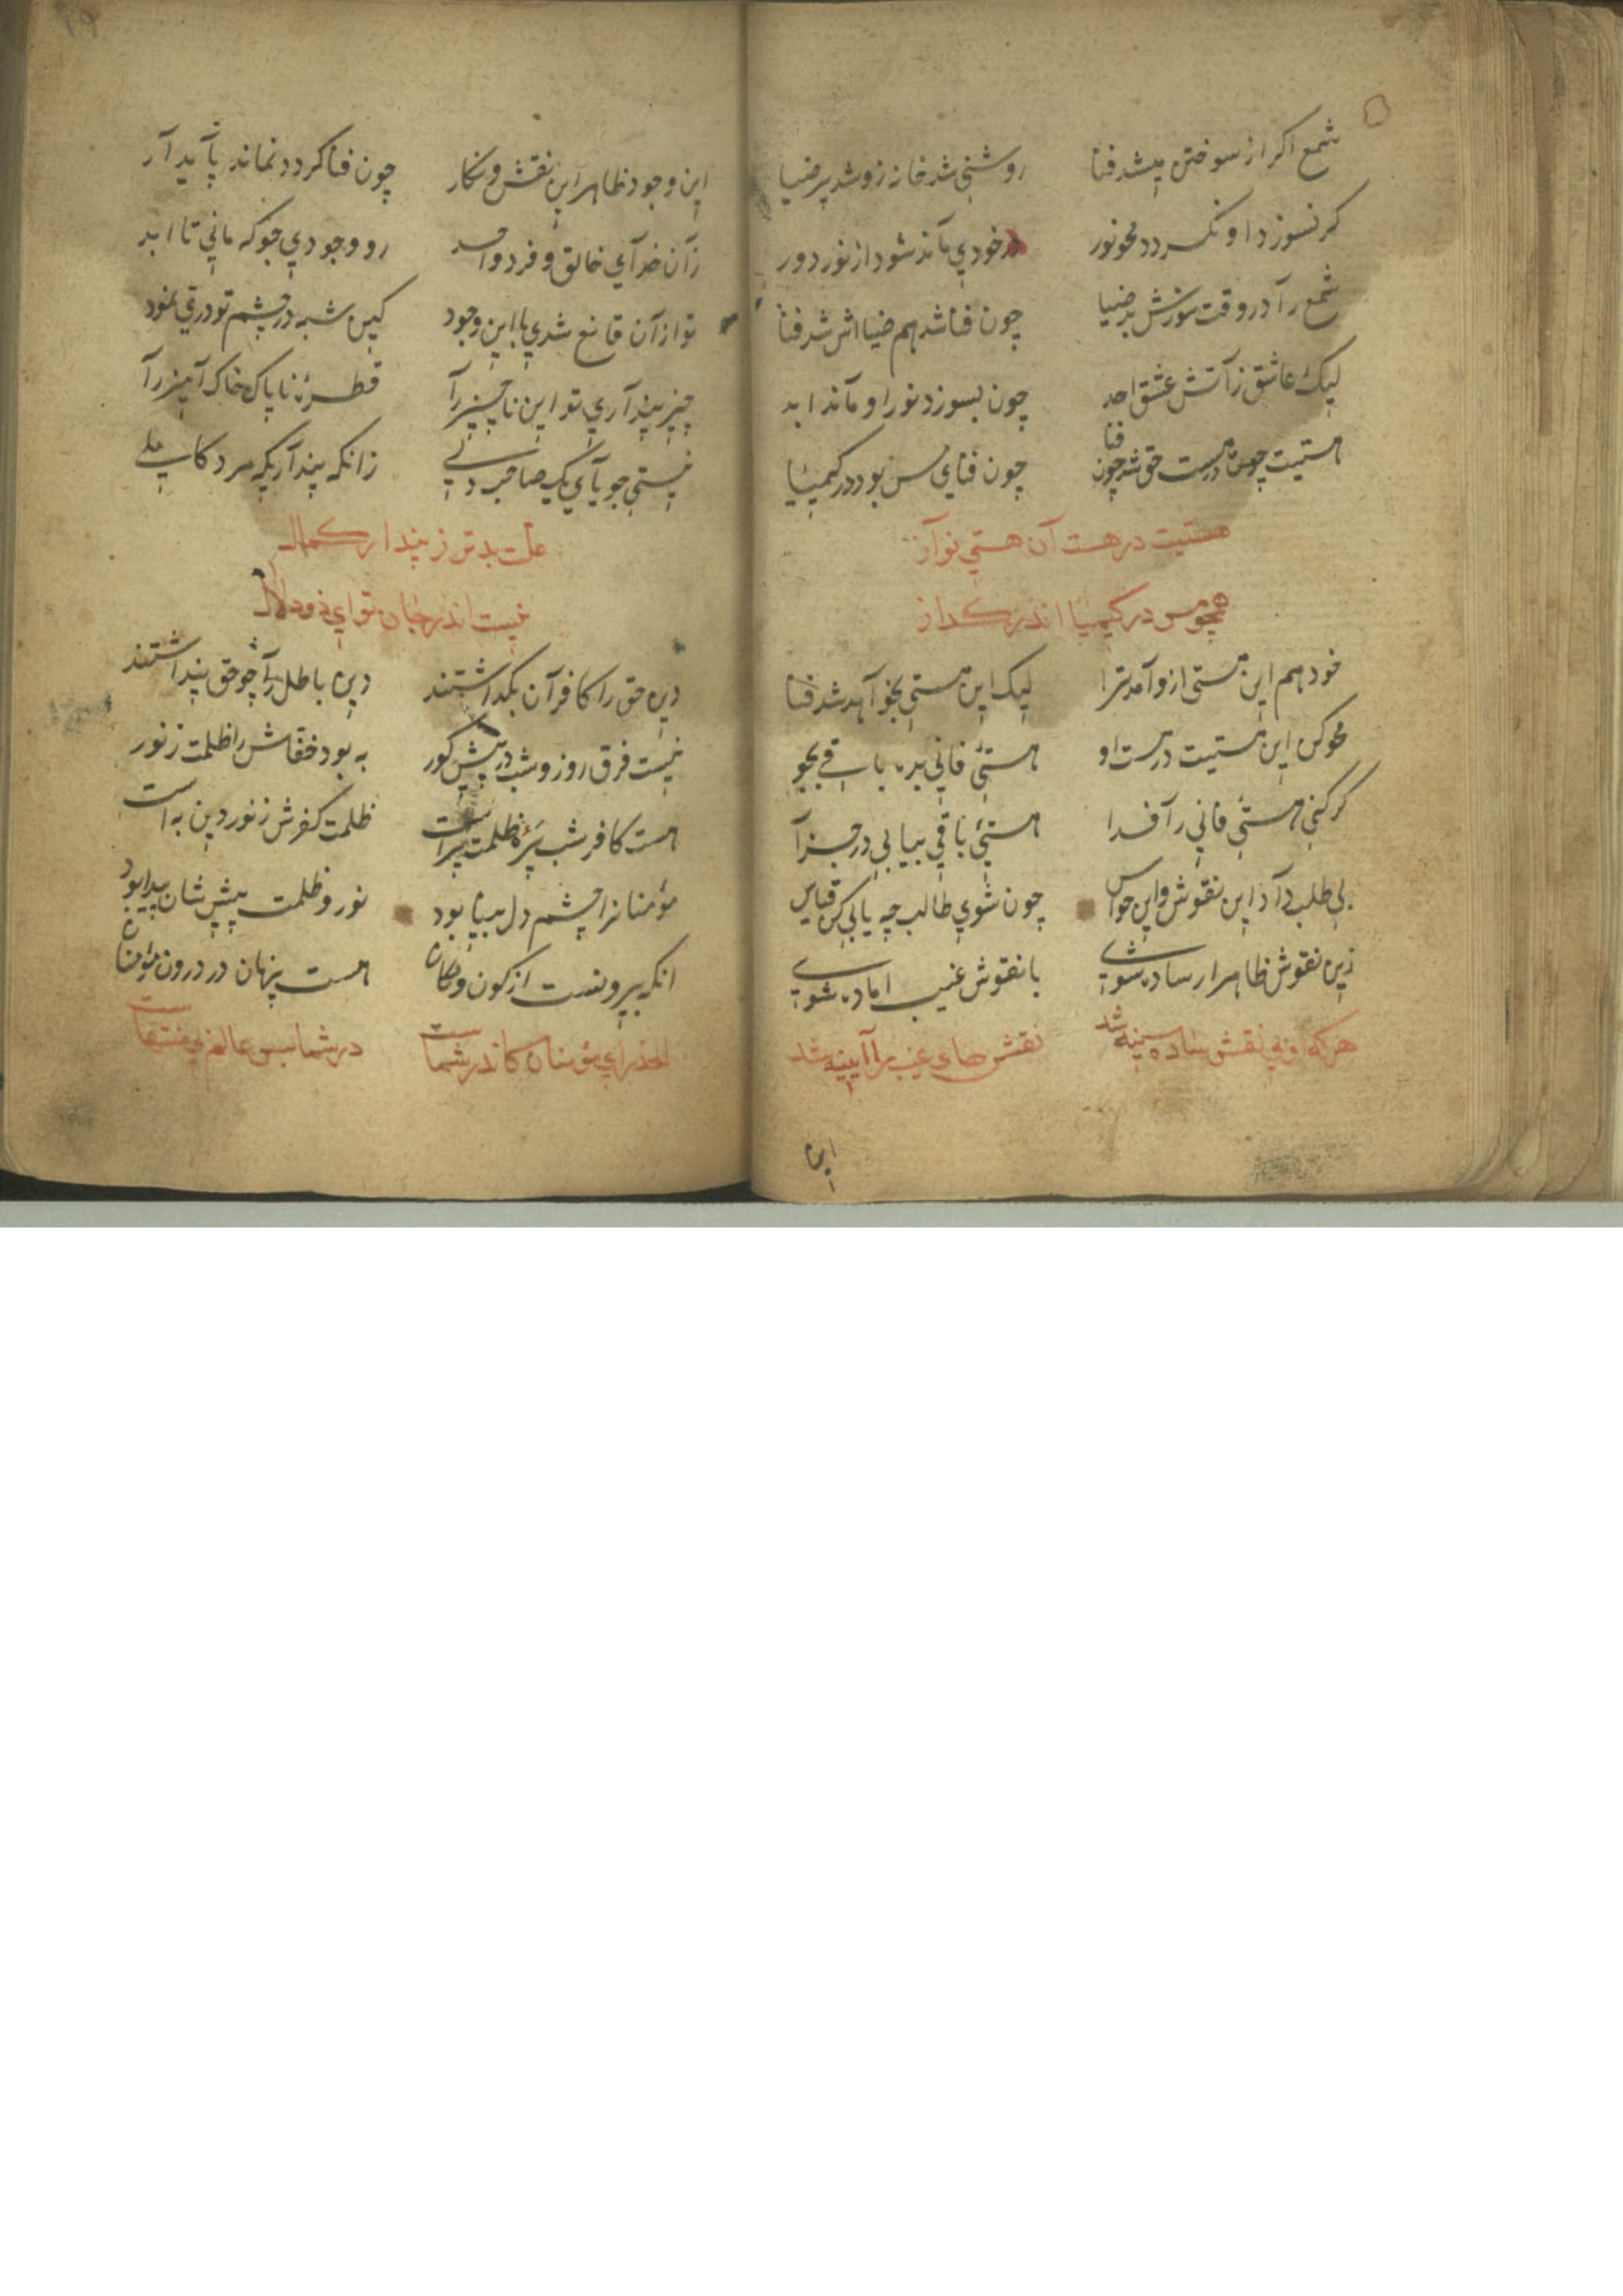 شمع اکر از سوختن میشد فنا روشنی شد خانه زو شد پر ضیا
کر نسوزد او نکردد محو نور در خودی ماند شود از نور دور
شمع را در وقت سوزش بد ضیا چون فنا شد هم ضیااش شد فنا
لیک عاشق ز آتش عشق احد چون بسوزد نور او ماند ابد
هستیت چون در هست حق شد چون فنا چون فنای مس بود در کیمیا
هستیت در هست آن هستی نوآز
همچو مس در کیمیا اندر کداز
خود هم این هستی ازو آمد ترا لیک این هستی بخواهد شد فنا
محو کن این هستیت در هست او هستئ فانی بده باقی بجو
کر کنی هستی فانی را فدا هستئ باقی بیابی در جزا
بی طلب داد این نقوش و این حواس چون شوی طالب چه یابی کن قیاس
زین نقوش ظاهر ار ساده شوی با نقوش غیب اماده شوی
هر که او بی نقش ساده سینه شد نقش های غیب را آیینه شد
این
این وجود ظاهر این نقش و نکار چون فنا کردد نماند پایدار
زان خدای خالق و فرد واحد رو وجودی جو که مانی تا ابد
تو از آن قانع شدی با این وجود کین شبه در چشم تو دری نمود
چیز پنداری تو این ناچیز را قطرۀ ناپاک خاک آمیز را
نیستی جویای یک صاحب دلی زانکه پنداریکه مرد کاملی
علت بدتر ز پندار کمال
نیست اندر جان تو ای ذو دلال
دین حق را کافران بکداشتند دین باطل را چو حق پنداشتند
نیست فرق روز و شب در پیش کور به بود خفاش را ظلمت ز نور
هست کافر شب پره ظلمت پر است ظلمت کفرش ز نور دین به است
مؤمنانرا چشم دل بینا بود نور و ظلمت پیش شان پیدا بود
انکه بیرونست از کون و مکان هست پنهان در درون مؤمنان
الحذر ای مؤمنان کاندر شماست در شما بس عالم بی منتهاست